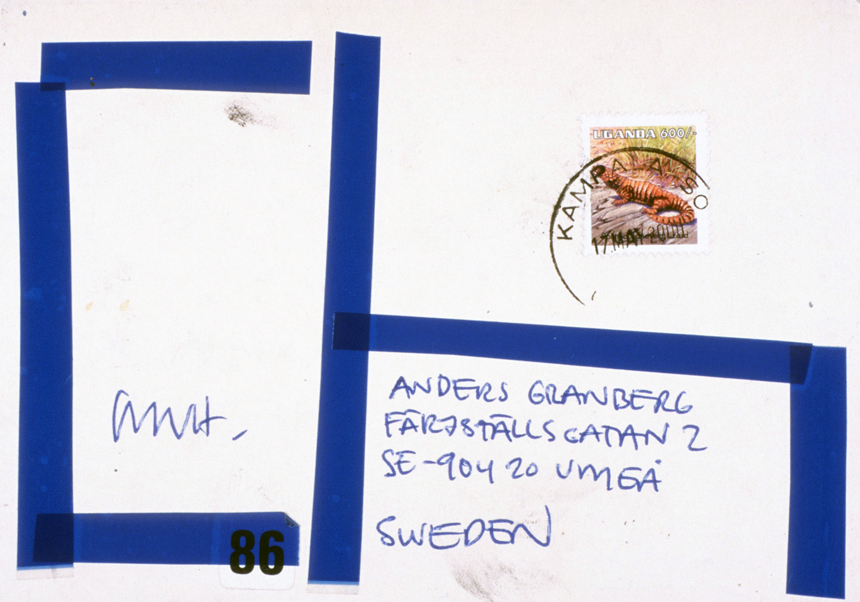 UGANDA 600/-
KAMPALA
17 MAY 2000
ANDERS GRANBERG
FÄRJSTÄLLSGATAN 2
SE-904 20 UMEÅ
SWEDEN
86